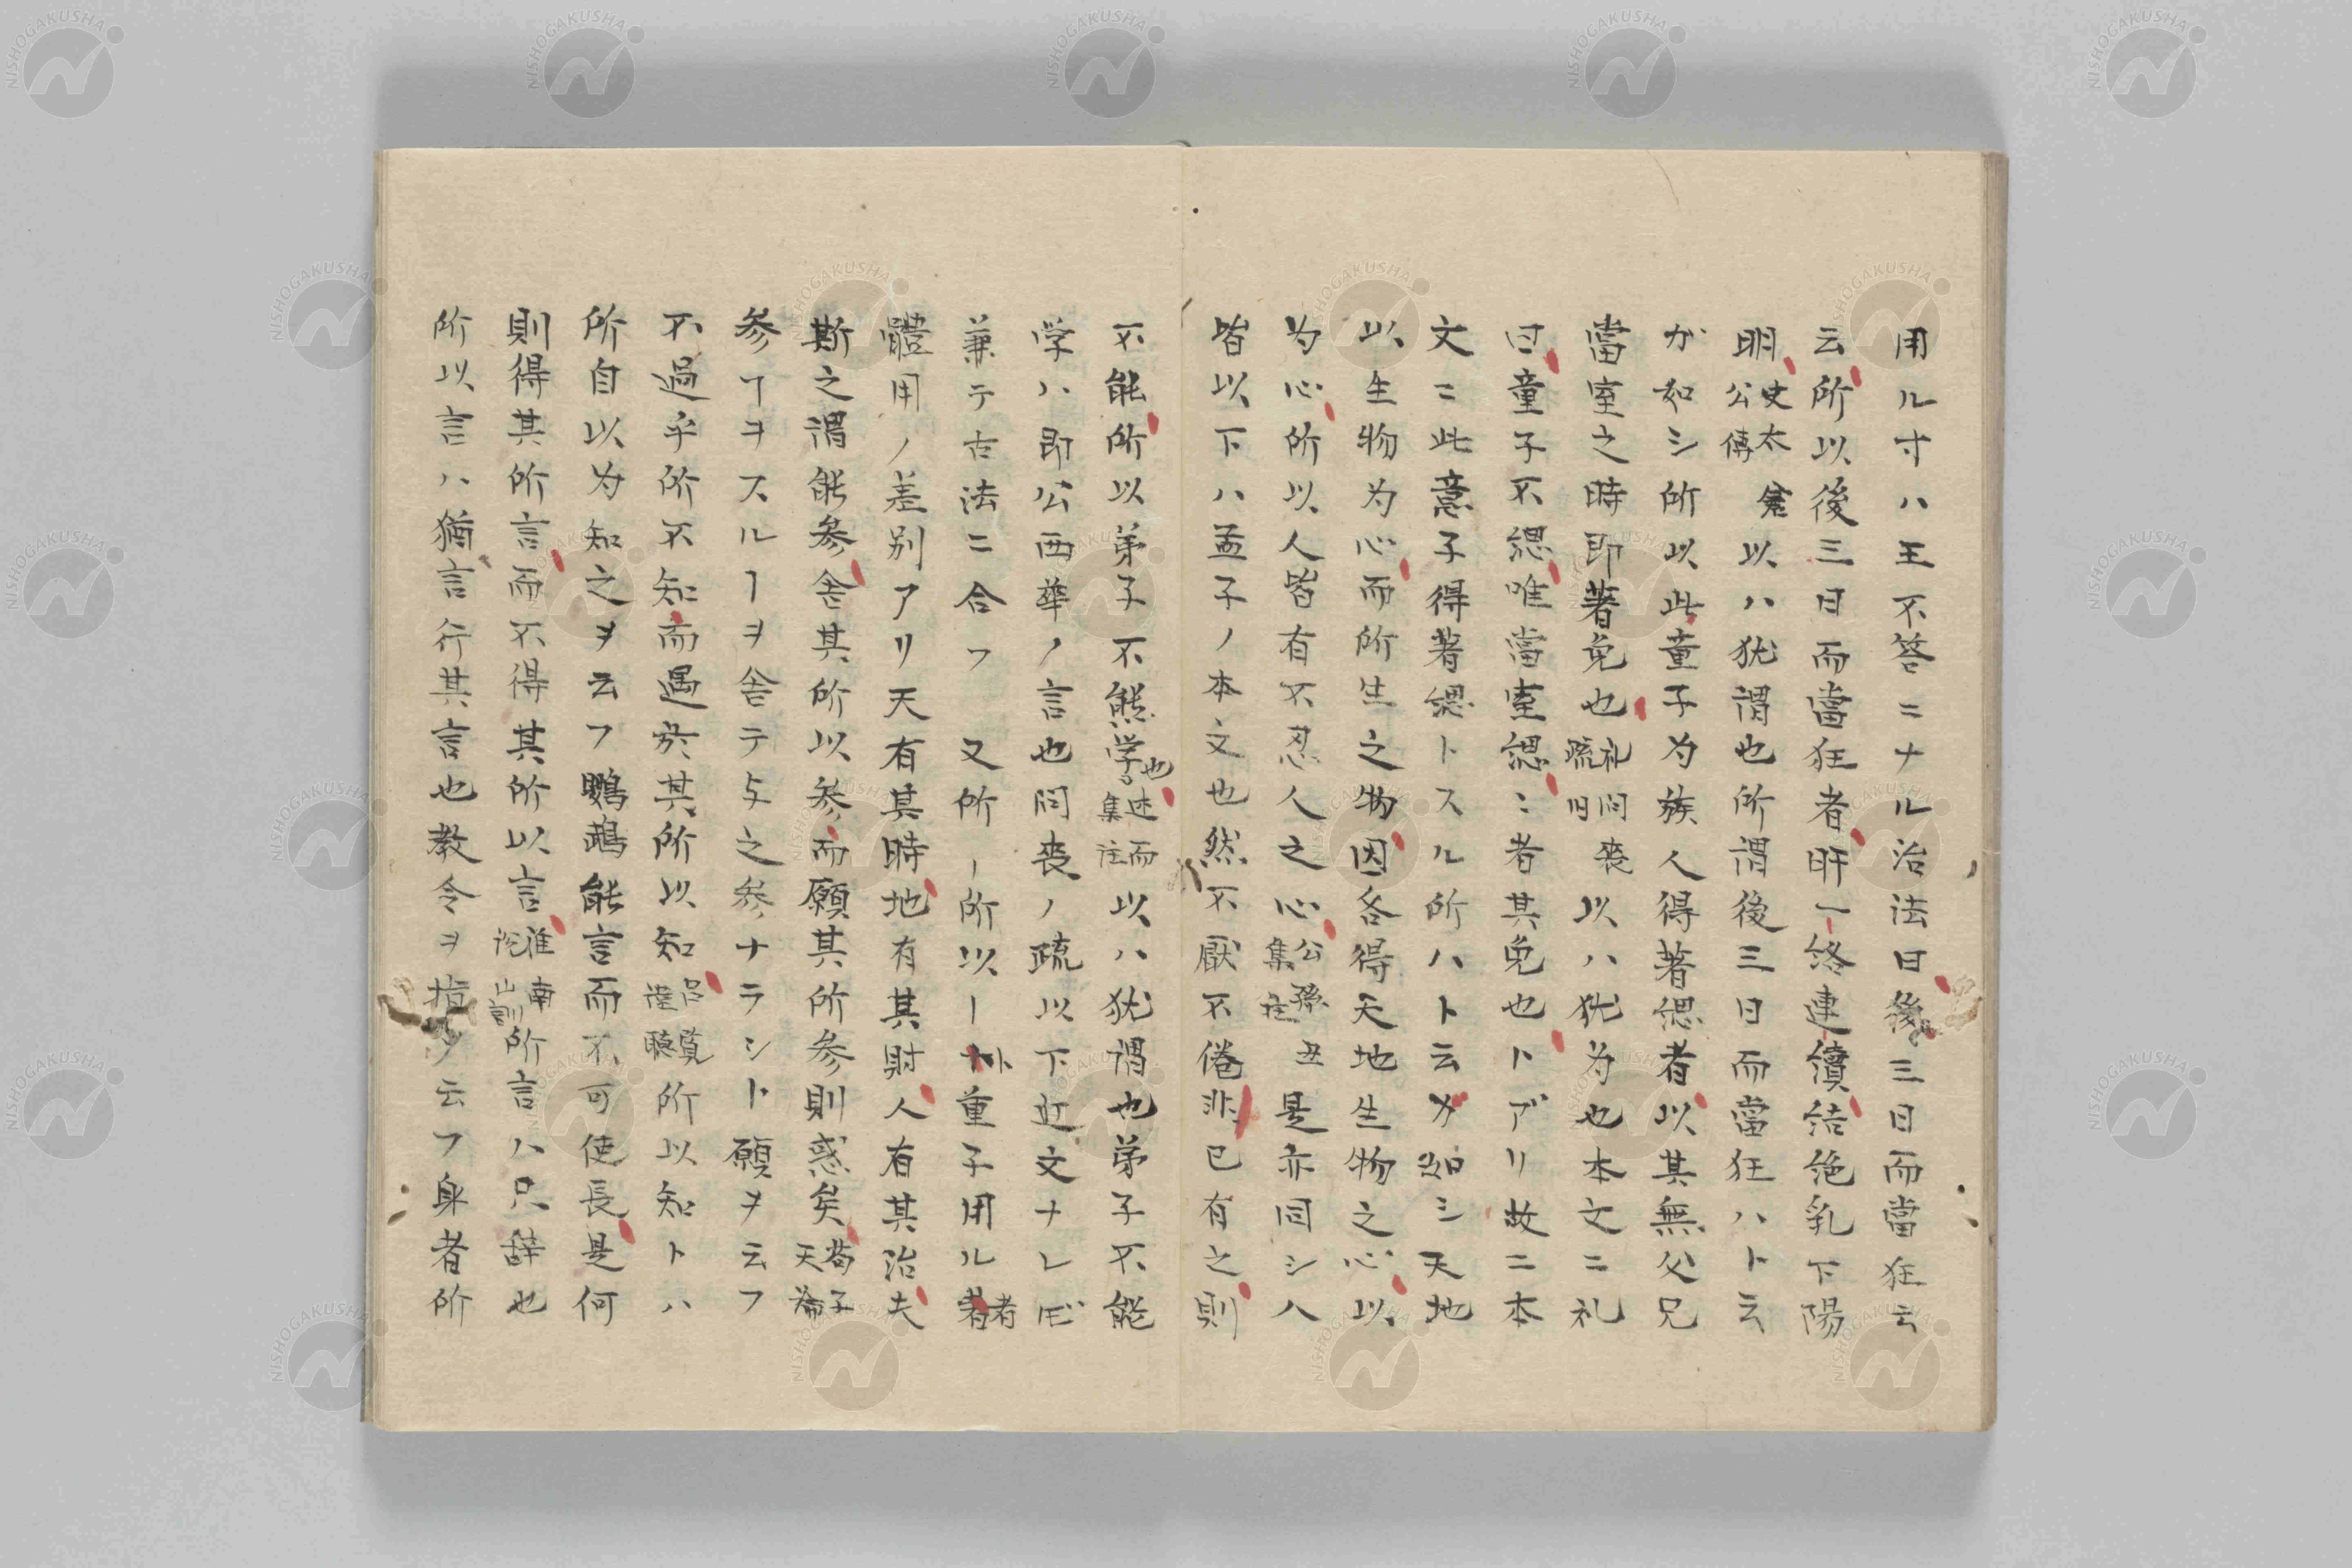 用ル寸ハ王不答ニナル治法曰後三日而當狂云
云所以後三日而當狂者肝一終連續結絶乳下陽
明史太倉公傳以ハ犹謂也所謂後三日而當狂ハト云
ガ如シ所以此童子为族人得著緦者以其無父兄
當室之時即著免也礼問喪疏旧以ハ犹为也本文ニ礼
曰童子不緦唯當室緦〻者其免也トアリ故ニ本
文ニ此意子得著緦トスル所ハト云ガ如シ天地
以生物为心而所生之物因各得天地生物之心以
为心所以人皆有不忍人之心公孫丑集注是亦同シ人
皆以下ハ孟子ノ本文也然不厭不倦非已有之則
不能所以弟子不能学也述而集注以ハ犹謂也弟子不能
学ハ即公西華ノ言也問喪ノ疏以下近文ナレ𪜈
兼テ古法ニ合フ又所ー所以ー外重子用ル著者
體用ノ差別アリ天有其時地有其財人有其治夫
斯之謂能参舎其所以参而願其所参則惑矣荀子天論
参ヿヲスルーヲ舎テ与之参ナラシト願ヲ云フ
不過乎所不知而遇於其所以知呂覧謹聴所以知トハ
所自以为知之ヲ云フ鸚鵡能言而不可使長是何
則得其所言而不得其所以言淮南説山訓所言ハ只辞也
所以言ハ猶言行其言也教令ヲ指ノ云フ身者所